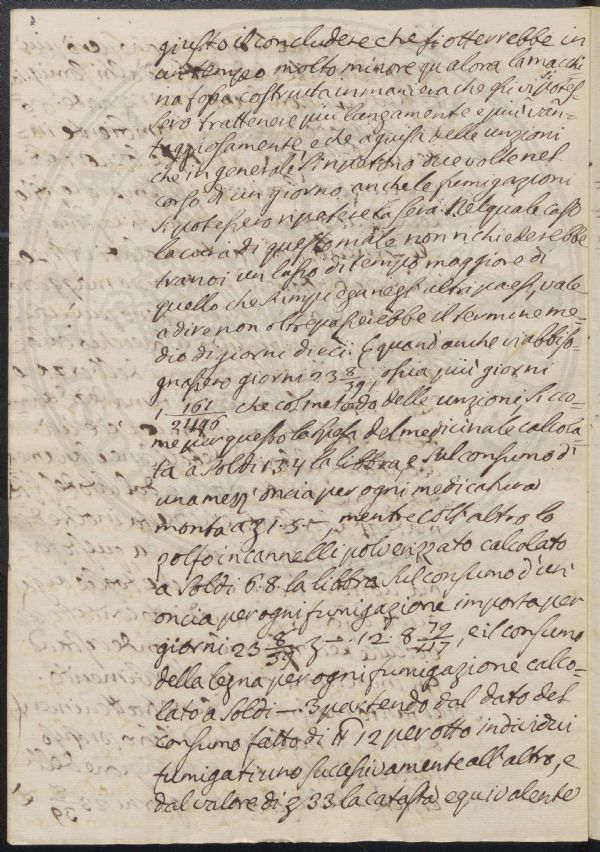 giusto il concludere che si otterrebbe in
un tempo molto minore qualora la macchi-
na fosse costruita in maniera che gli si potes-
sero trattenere più lungamente e più van-
taggiosamente, e che a guisa delle unzioni
che in generale si ripetono due volte nel
corso di un giorno anche le fumigazioni
si potessero ripetere la sera. Nel quale caso
la cura di questo male non richiederebbe
tra noi un lasso di tempo maggiore di
quello che s'impiega negli altri paesi, vale
a dire non oltrepasserebbe il termine me-
dio di giorni dieci. E quand'anche vi abbiso-
gnassero giorni 23 8/39, ossia più giorni
1 161/2496 che col metodo delle unzioni, sicco-
me per questo la spesa del medicinale calcola-
ta a soldi 13.4 la libbra, e sul consumo di
una mezz'oncia per ogni medicatura
monta a 1.5 —, mentre coll'altro lo
zolfo in cannelli polverizzato calcolato
a soldi 6.8 la libbra sul consumo d'un
oncia per ogni fumigazione importa per
giorni 23 8/39 — . 12 . 8 72/117, e il consumo
della legna per ogni fumigazione calco-
lato a soldi — . 3 partendo dal dato del
consumo fatto di 12 per otto individui
fumigati uno successivamente all'altro, e
dal valore di 33 la catasta equivalente